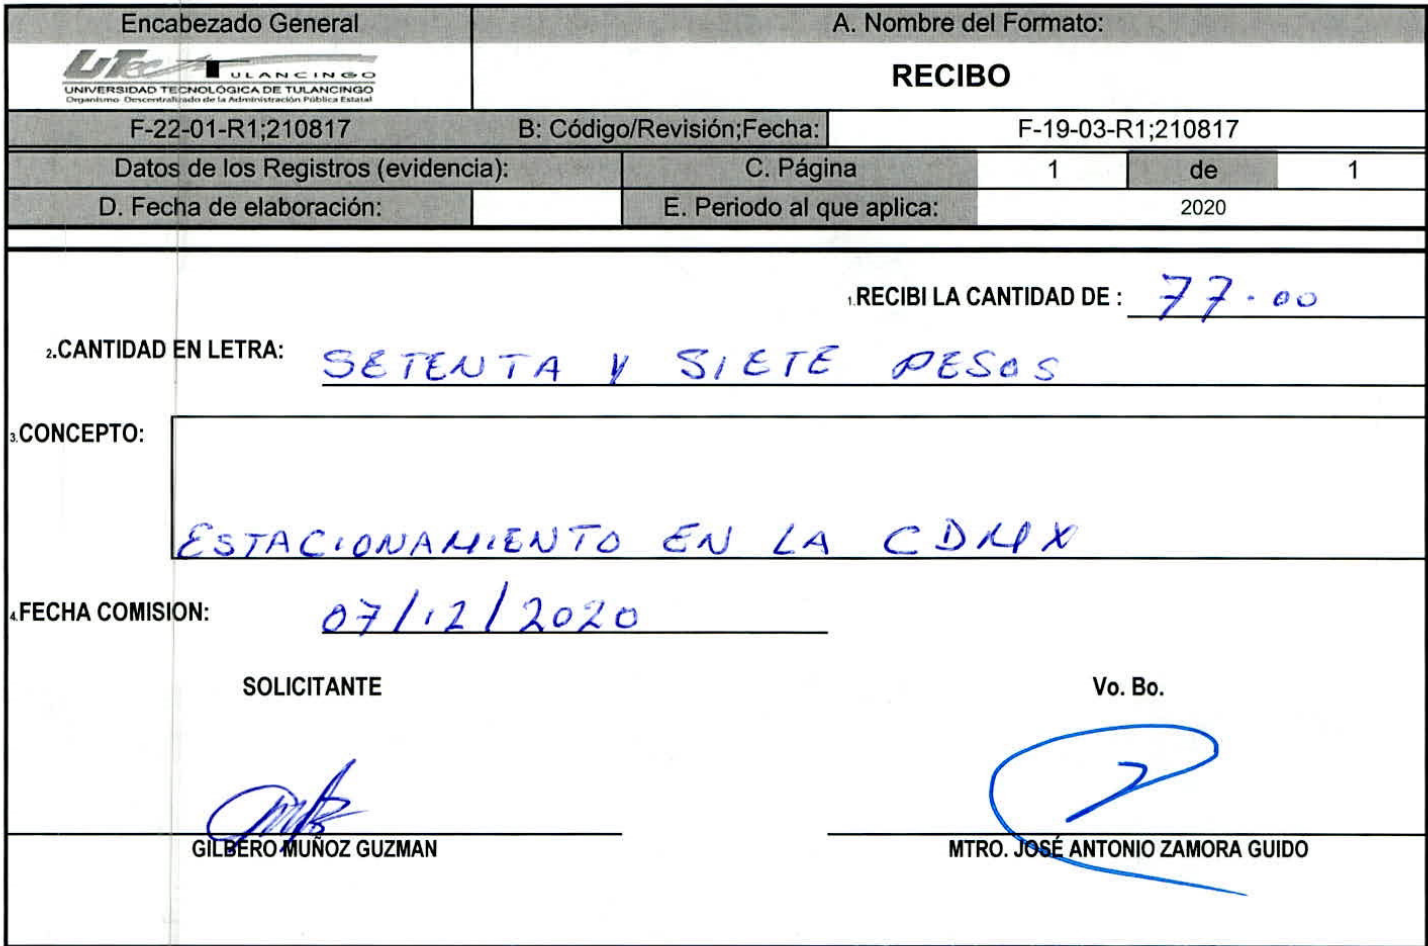 Encabezado General
A. Nombre del Formato:
UTec TULANCINGO
UNIVERSIDAD TECNOLÓGICA DE TULANCINGO
Organismo Descentralizado de la Administración Pública Estatal
RECIBO
F-22-01-R1;210817 B: Código/Revisión;Fecha: F-19-03-R1;210817
Datos de los Registros (evidencia): C. Página 1 de 1
D. Fecha de elaboración: E. Periodo al que aplica: 2020
1.RECIBI LA CANTIDAD DE : 77.00
2.CANTIDAD EN LETRA: SETENTA Y SIETE PESOS
3.CONCEPTO:
ESTACIONAMIENTO EN LA CDMX
4.FECHA COMISION: 07/12/2020
SOLICITANTE Vo. Bo.
GILBERO MUÑOZ GUZMAN MTRO. JOSÉ ANTONIO ZAMORA GUIDO